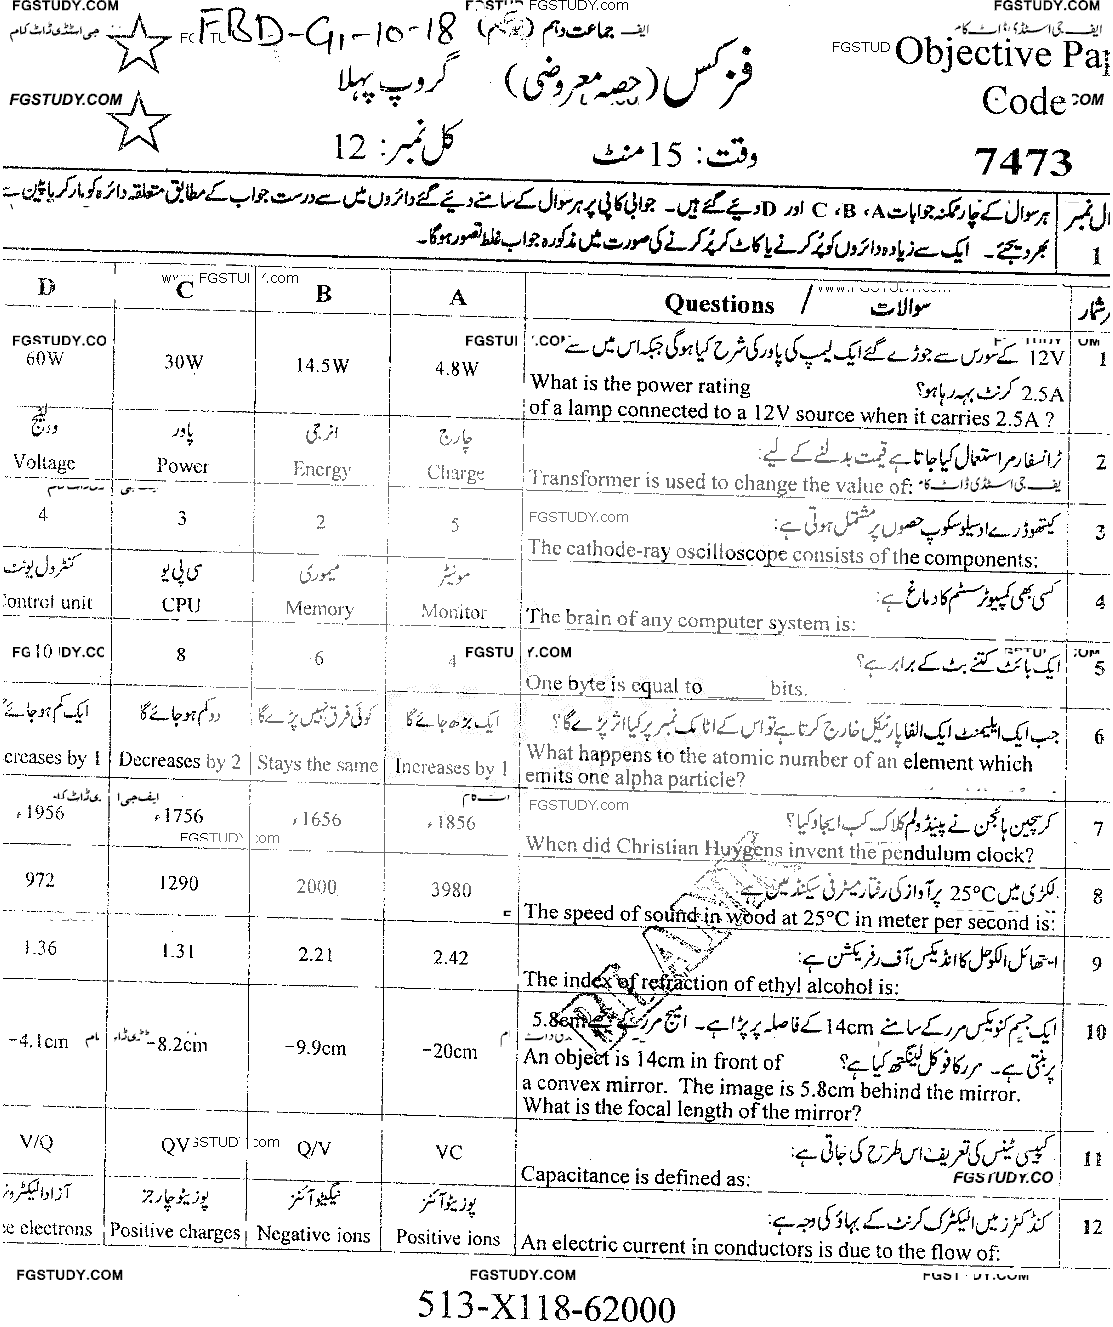 FGSTUDY.COM
FGSTUDY.COM
FGSTUDY.COM
FBD-G1-10-18
جماعت دہم
ایف جی اسٹڈی ڈاٹ کام
FGSTUD
Objective Pap
Code
FGSTUDY.COM
فزکس (حصہ معروضی)
گروپ پہلا
وقت: 15 منٹ
کل نمبر: 12
7473
ہر سوال کے چار ممکنہ جوابات A، B، C اور D دیئے گئے ہیں۔ جوابی کاپی پر ہر سوال کے سامنے دیئے گئے دائروں میں سے درست جواب کے مطابق متعلقہ دائرہ کو مارکر یا پین سے
بھر دیجئے۔ ایک سے زیادہ دائروں کو پُر کرنے یا کاٹ کر پُر کرنے کی صورت میں مذکورہ جواب غلط تصور ہوگا۔
1
D C B A Questions / سوالات
1 12V کے سورس سے جوڑے گئے ایک لیمپ کی پاور کی شرح کیا ہوگی جبکہ اس میں سے
2.5A کرنٹ بہہ رہا ہو؟
What is the power rating
of a lamp connected to a 12V source when it carries 2.5A ?
60W 30W 14.5W 4.8W
2 ٹرانسفارمر استعمال کیا جاتا ہے قیمت بدلنے کے لیے:
Transformer is used to change the value of:
وولٹیج پاور انرجی چارج
Voltage Power Energy Charge
3 کیتھوڈ رے اوسیلوسکوپ حصوں پر مشتمل ہوتی ہے:
FGSTUDY.com
The cathode-ray oscilloscope consists of the components:
4 3 2 5
4 کسی بھی کمپیوٹر سسٹم کا دماغ ہے:
The brain of any computer system is:
کنٹرول یونٹ سی پی یو میموری مونیٹر
Control unit CPU Memory Monitor
5 ایک بائٹ کتنے بٹ کے برابر ہے؟
One byte is equal to ______ bits.
10 8 6 4
6 جب ایک ایلیمنٹ ایک الفا پارٹیکل خارج کرتا ہے تو اس کے اٹامک نمبر پر کیا اثر پڑے گا؟
What happens to the atomic number of an element which
emits one alpha particle?
ایک کم ہو جائے دو کم ہو جائے گا کوئی فرق نہیں پڑے گا ایک بڑھ جائے گا
creases by 1 Decreases by 2 Stays the same Increases by 1
7 کرسچین ہائجن نے پینڈولم کلاک کب ایجاد کیا؟
FGSTUDY.com
When did Christian Huygens invent the pendulum clock?
1956ء 1756ء 1656ء 1856ء
8 لکڑی میں 25°C پر آواز کی رفتار میٹر فی سیکنڈ میں ہے:
The speed of sound in wood at 25°C in meter per second is:
972 1290 2000 3980
9 ایتھائل الکوحل کا انڈیکس آف رفریکشن ہے:
The index of refraction of ethyl alcohol is:
1.36 1.31 2.21 2.42
10 ایک جسم کنویکس مرر کے سامنے 14cm کے فاصلہ پر پڑا ہے۔ امیج مرر کے پیچھے 5.8cm
پر بنتی ہے۔ مرر کا فوکل لینگتھ کیا ہے؟
An object is 14cm in front of
a convex mirror. The image is 5.8cm behind the mirror.
What is the focal length of the mirror?
-4.1cm -8.2cm -9.9cm -20cm
11 کپیسی ٹینس کی تعریف اس طرح کی جاتی ہے:
Capacitance is defined as:
FGSTUDY.CO
V/Q QV Q/V VC
12 کنڈکٹرز میں الیکٹرک کرنٹ کے بہاؤ کی وجہ ہے:
An electric current in conductors is due to the flow of:
آزاد الیکٹرونز پوزیٹو چارجز نیگیٹو آئنز پوزیٹو آئنز
ee electrons Positive charges Negative ions Positive ions
FGSTUDY.COM
FGSTUDY.COM
513-X118-62000